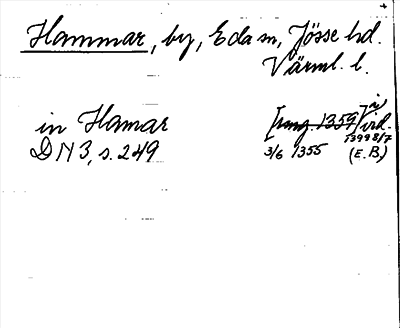 Hammar, by, Eda sn, Jösse hd.
Värml. l.
in Hamar [omkr. 1359] i vid.
DN 3, s. 249 3/6 1355 1399 8/7 (E.B.)